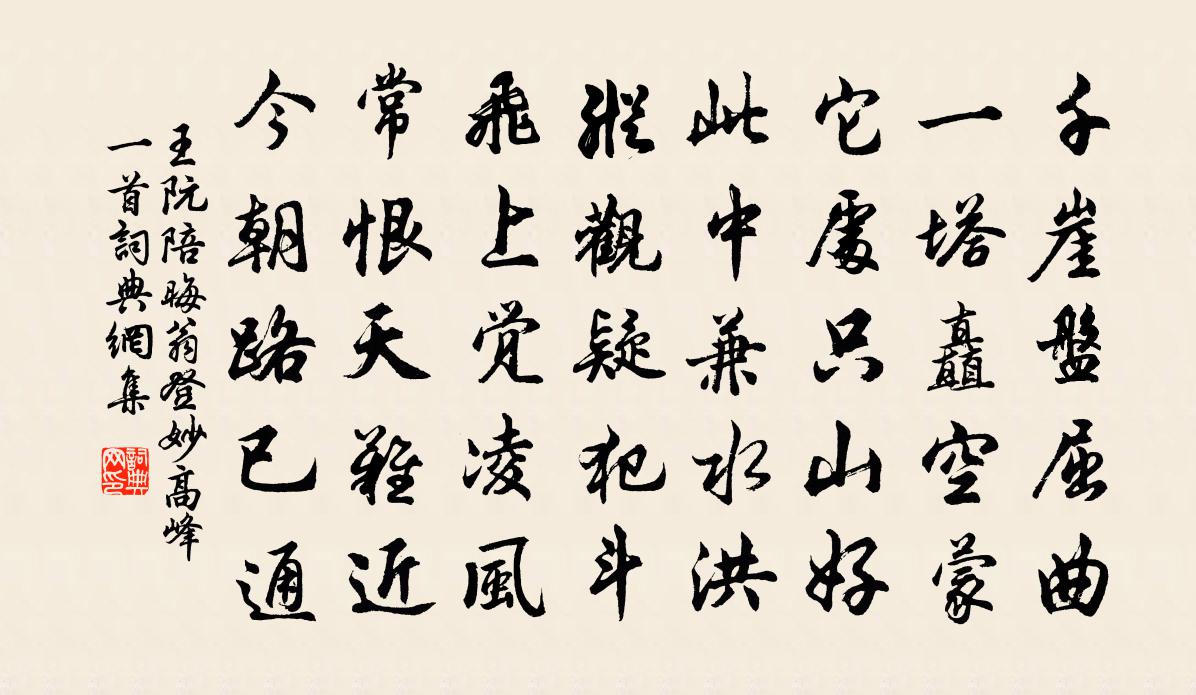 千崖盤屈曲
一塔矗空蒙
它處只山好
此中兼水洪
縱觀疑犯斗
飛上覺凌風
常恨天難近
今朝路已通
王阮陪晦翁登妙高峰
一首詞典網集
詞典网印